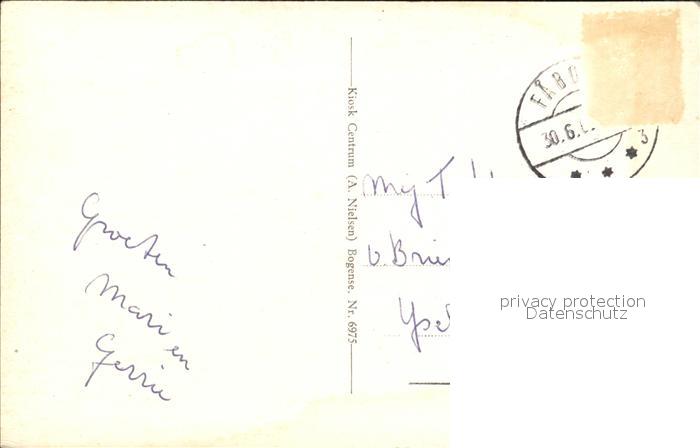 Groeten
Mari en
Gerrie
Kiosk Centrum (A. Nielsen) Bogense. Nr. 6975
FÅBO
30.6.
3
Mej T
v Brie
Yse
privacy protection
Datenschutz